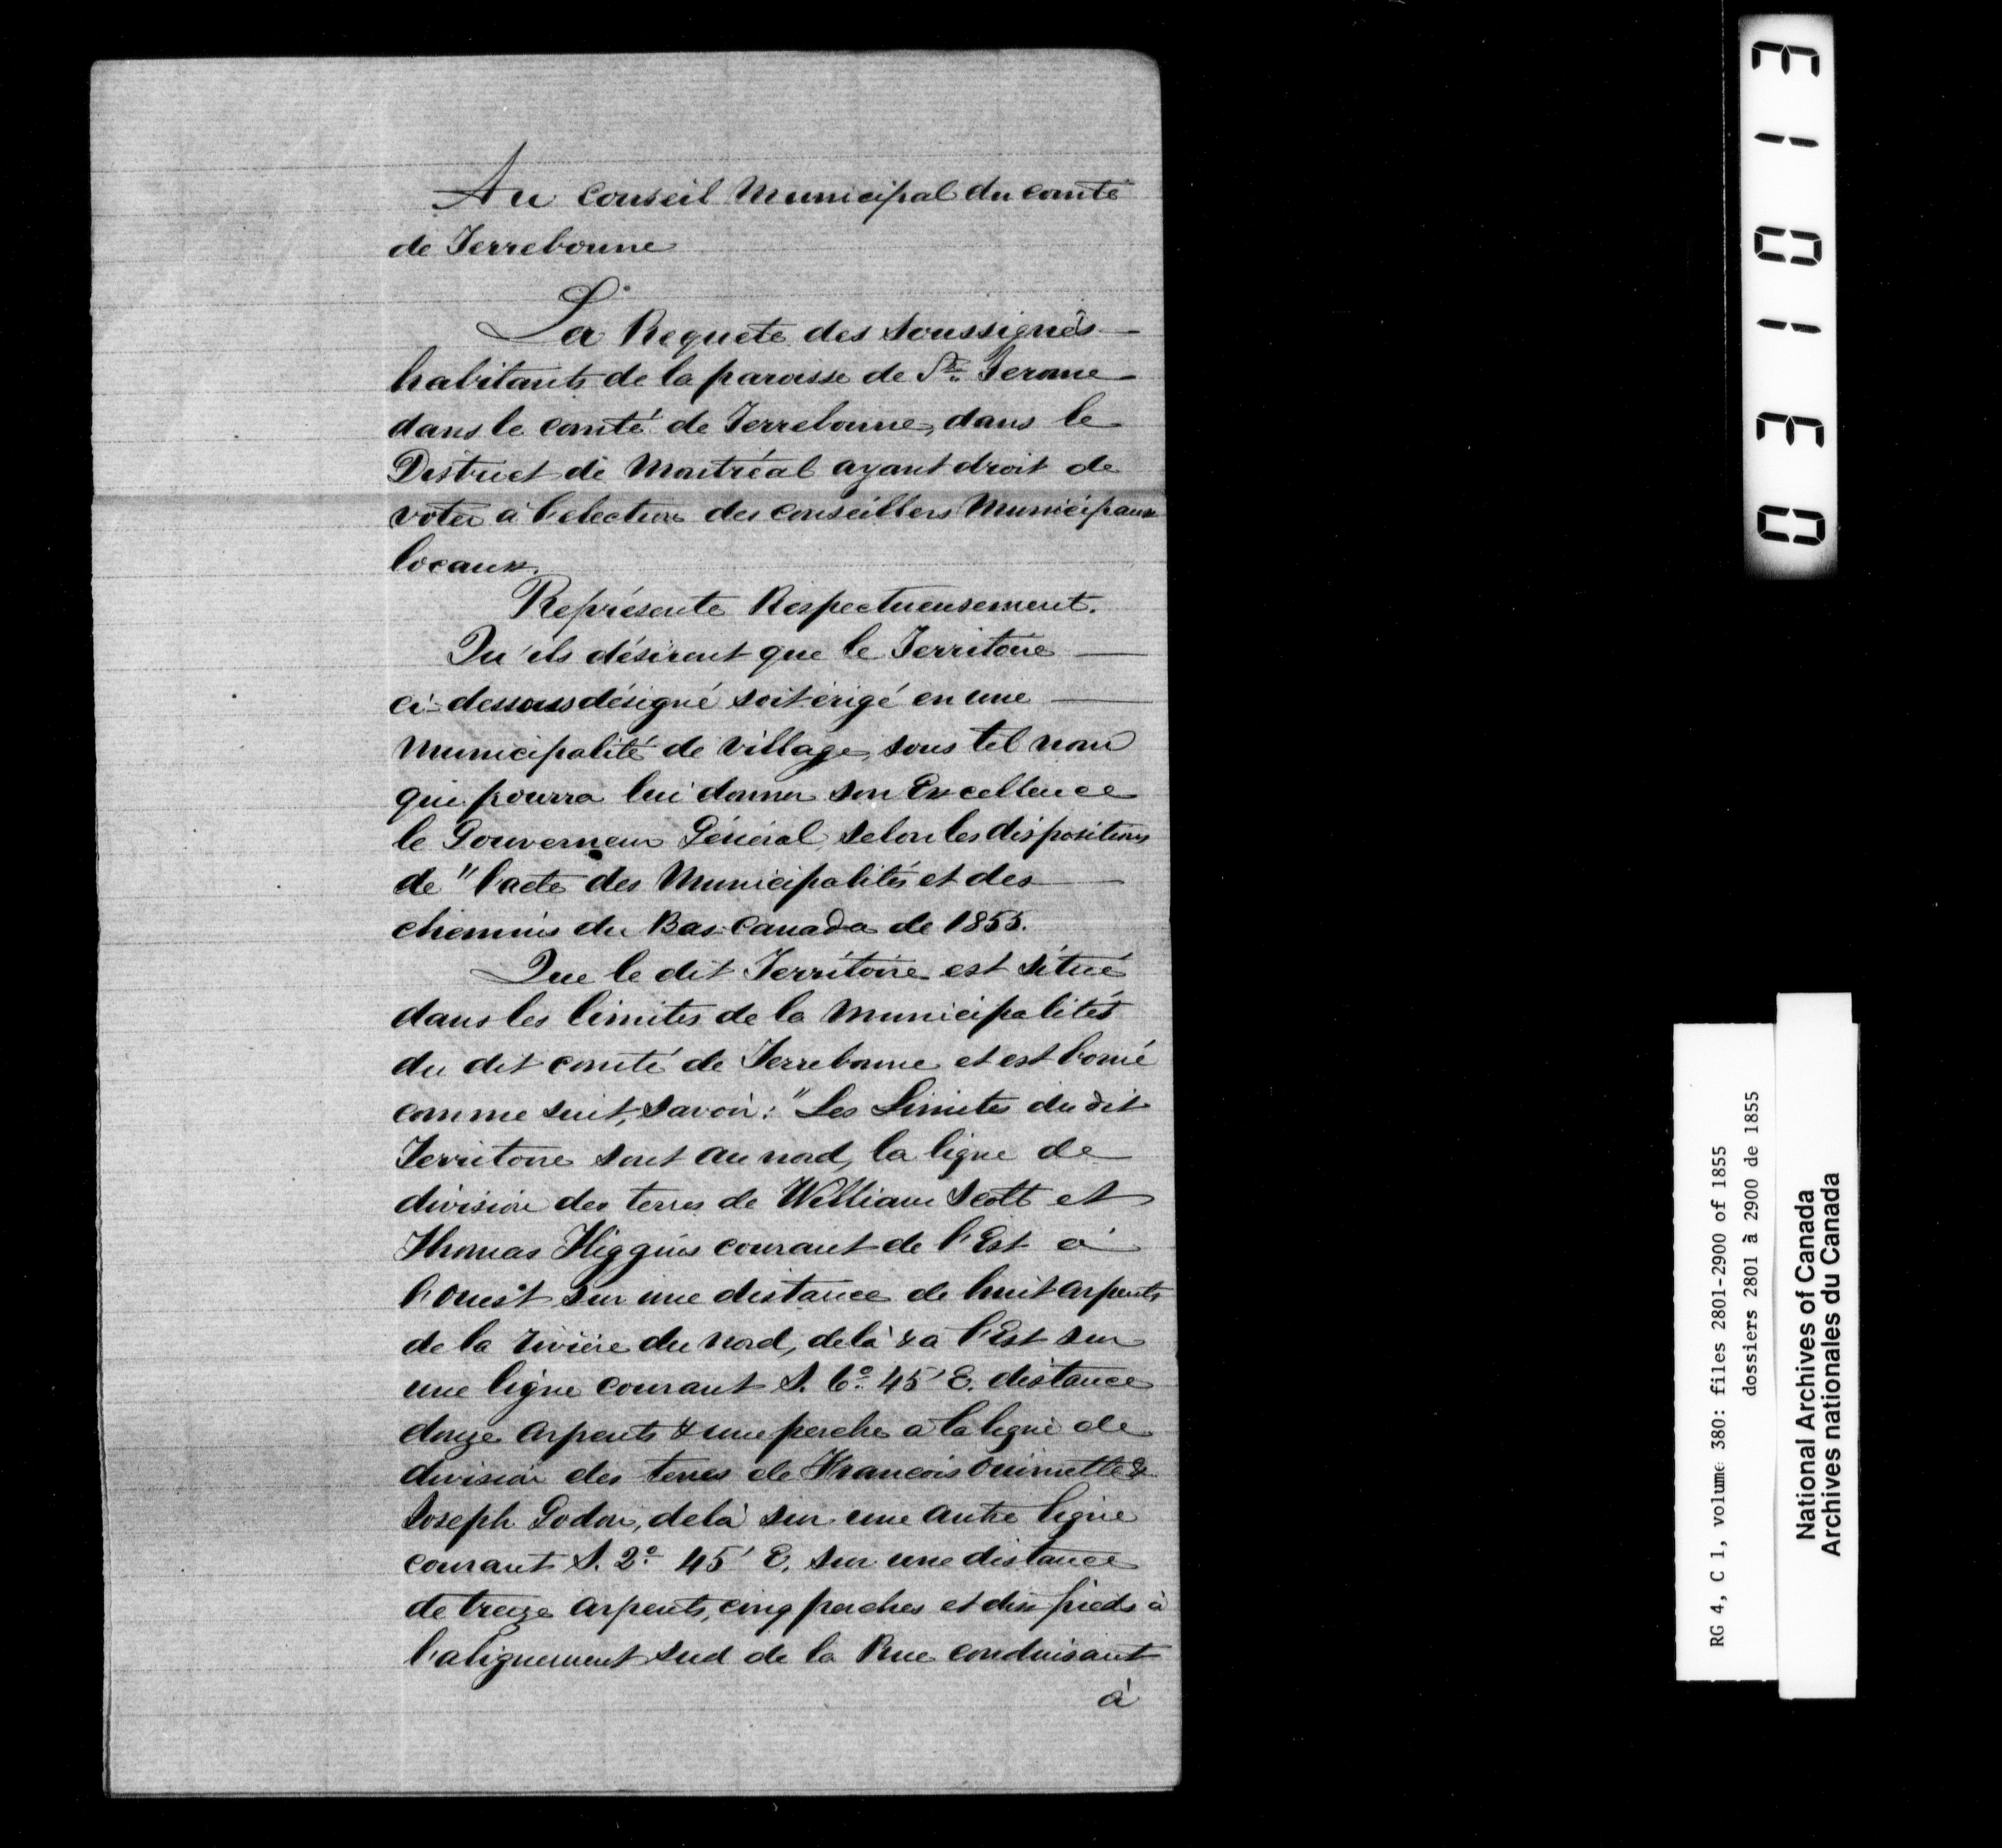 Au Conseil Municipal du comté
de Terrebonne
La Requete des Soussignés
habitants de la paroisse de St. Jerome
dans le comté de Terrebonne, dans le
District de Montréal ayant droit de
voter à l'election des conseillers Municipaux
locaux.
Représente Respectueusement.
Qu'ils désirent que le Territoire
ci-dessous désigné soit érigé en une
Municipalité de Village, sous tel nom
que pourra lui donner son Excellence
le Gouverneur Général, selon les dispositions
de "l'acte des Municipalités et des
chemins du Bas-Canada de 1855.
Que le dit Territoire est situé
dans les limites de la Municipalités
du dit comté de Terrebonne et est borné
comme suit, savoir: "Les Limites du dit
Territoire sont au nord, la ligne de
division des terres de William Scott et
Thomas Higgins courant de l'Est à
l'Ouest sur une distance de huit arpents
de la rivière du nord, delà & à l'Est sur
une ligne courant S. 6° 45' E. distance
douze arpents & une perche à la ligne de
division des terres de Francois Ouimette &
Joseph Godon, delà sur une autre ligne
courant S. 2° 45' E. sur une distance
de treize arpents, cinq perches et dix pieds à
l'alignement sud de la Rue conduisant
à
031013
RG 4, C 1, volume 380: files 2801-2900 of 1855
dossiers 2801 à 2900 de 1855
National Archives of Canada
Archives nationales du Canada